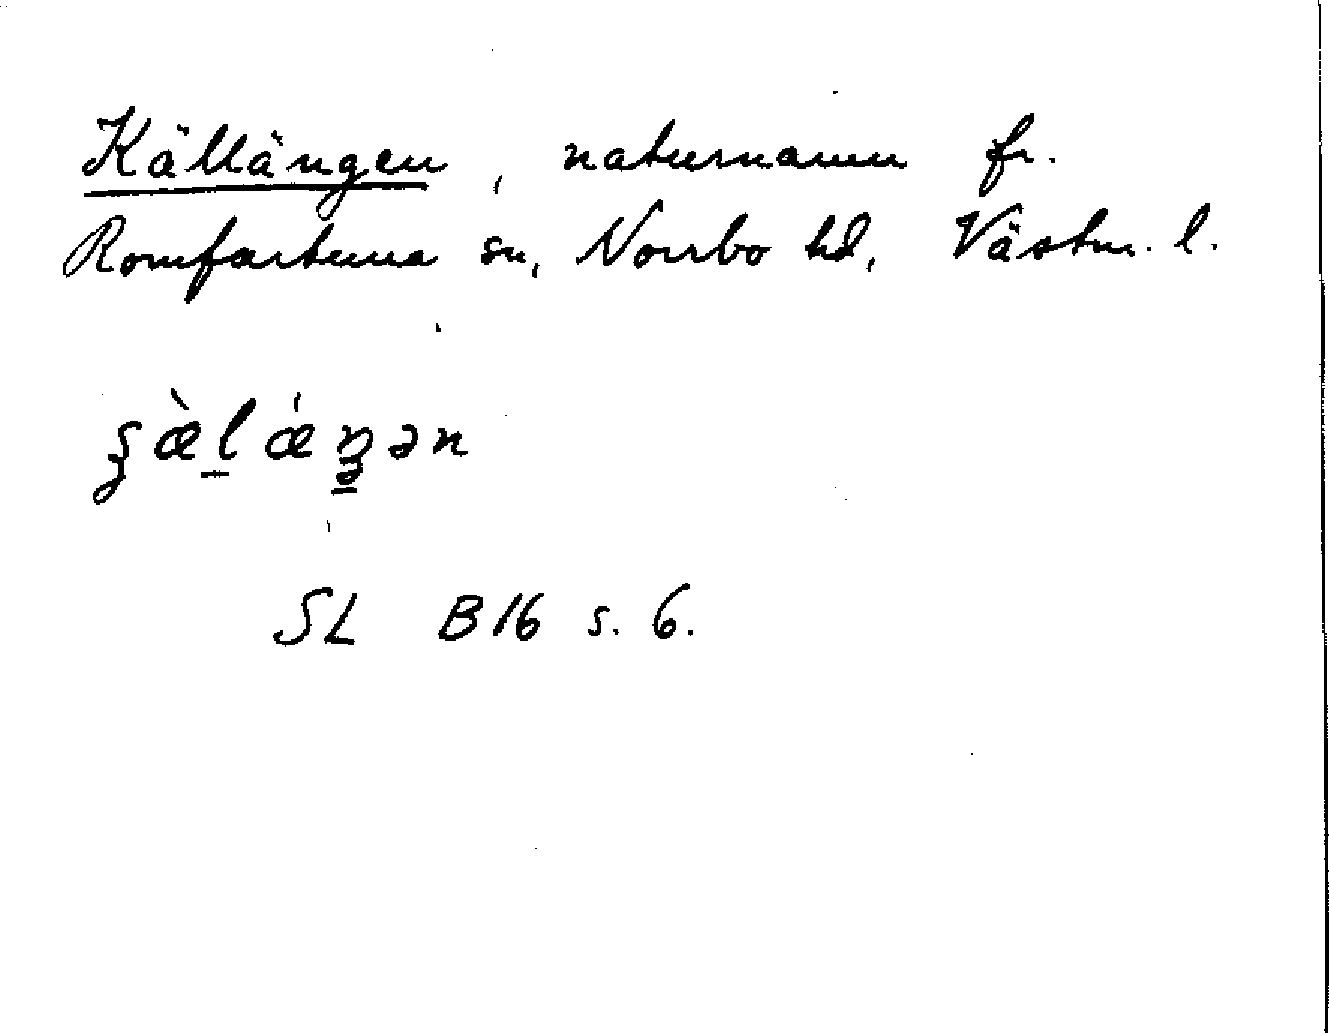 Källängen, naturnamn fr.
Romfartuna sn, Norrbo hd, Västm. l.
ʂæ̀l̠ǽŋ̠ən
SL B16 s. 6.